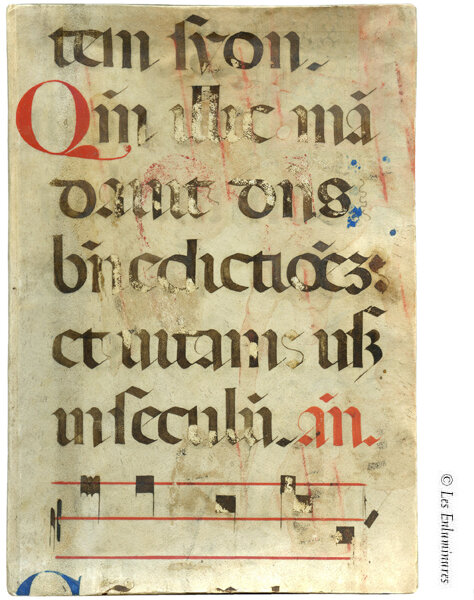 tem syon.
Qm̄ illic mā
davit dn̄s
bn̄edictiōēz:
et uitam usqꝫ
in seculū. an̄.
© Les Enluminures